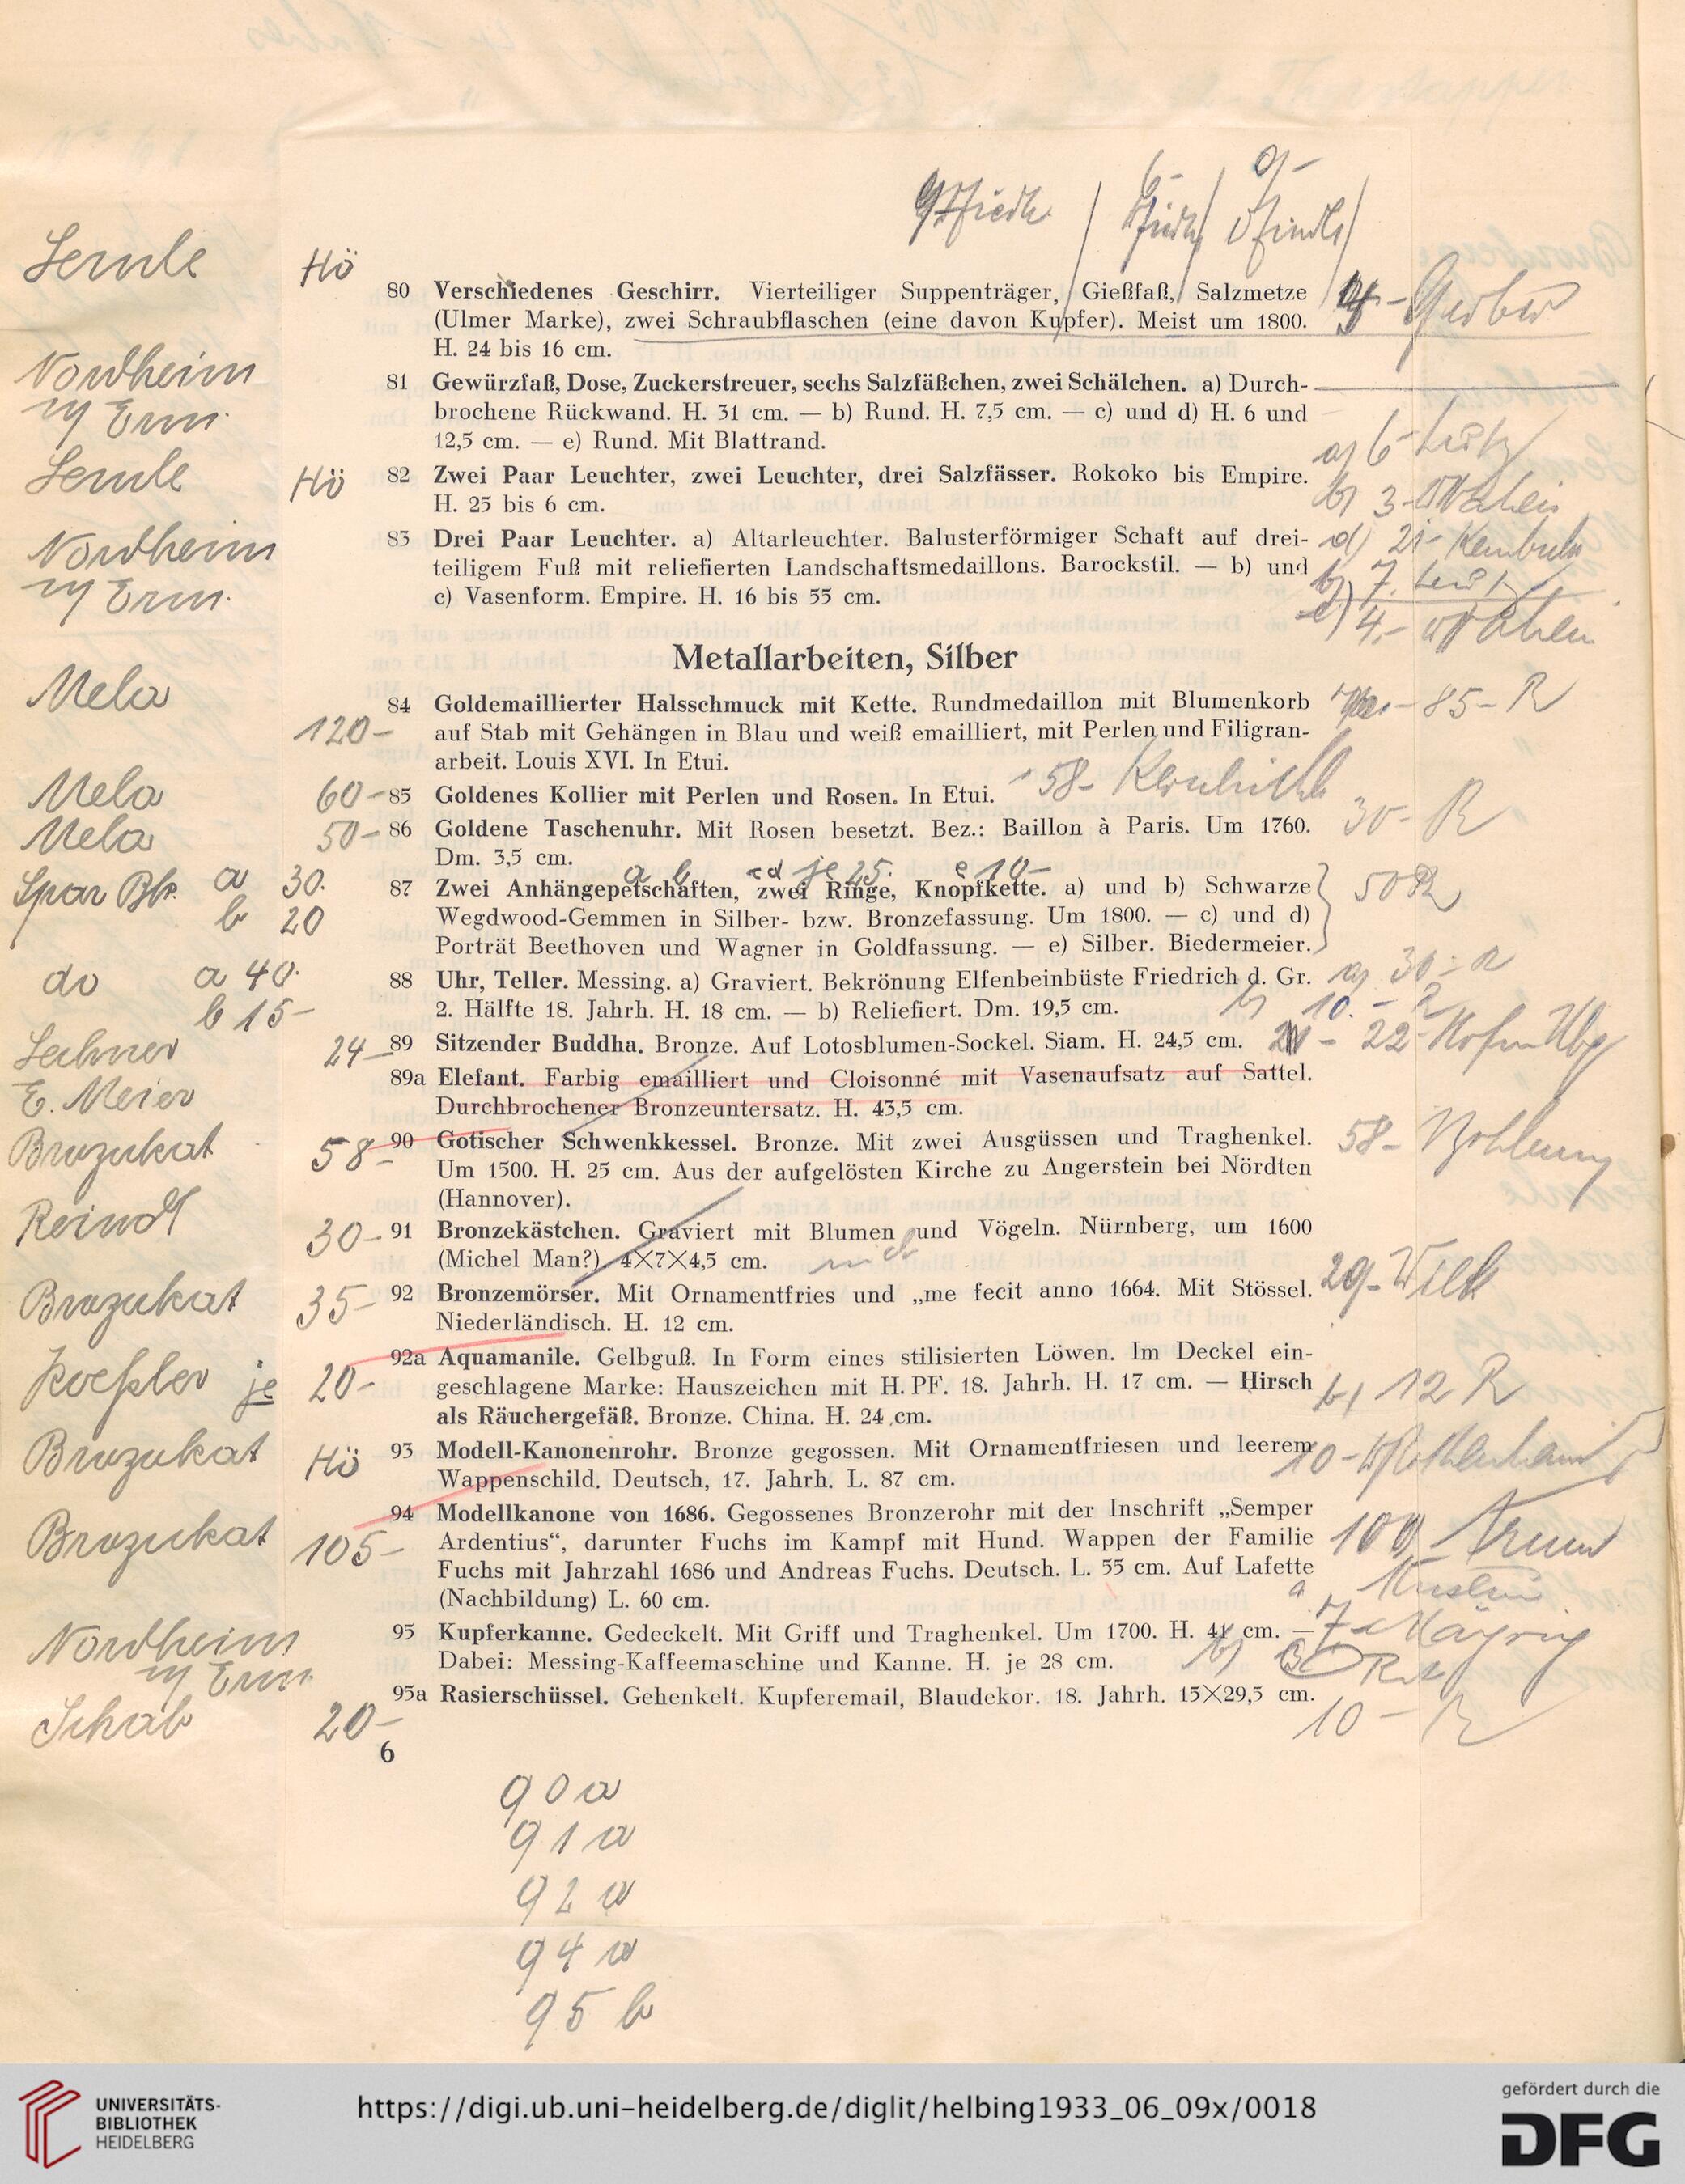 Hö
80 Verschiedenes Geschirr. Vierteiliger Suppenträger, Gießfaß, Salzmetze
(Ulmer Marke), zwei Schraubflaschen (eine davon Kupfer). Meist um 1800.
H. 24 bis 16 cm.
Nordheim
81 Gewürzfaß, Dose, Zuckerstreuer, sechs Salzfäßchen, zwei Schälchen. a) Durch-
brochene Rückwand. H. 31 cm. — b) Rund. H. 7,5 cm. — c) und d) H. 6 und
12,5 cm. — e) Rund. Mit Blattrand.
Hö 82 Zwei Paar Leuchter, zwei Leuchter, drei Salzfässer. Rokoko bis Empire.
H. 25 bis 6 cm.
Nordheim
83 Drei Paar Leuchter. a) Altarleuchter. Balusterförmiger Schaft auf drei-
teiligem Fuß mit reliefierten Landschaftsmedaillons. Barockstil. — b) und
c) Vasenform. Empire. H. 16 bis 55 cm.
Metallarbeiten, Silber
Mela
84 Goldemaillierter Halsschmuck mit Kette. Rundmedaillon mit Blumenkorb 85- R
120- auf Stab mit Gehängen in Blau und weiß emailliert, mit Perlen und Filigran-
arbeit. Louis XVI. In Etui.
Mela 60- 85 Goldenes Kollier mit Perlen und Rosen. In Etui. 58-
Mela 50- 86 Goldene Taschenuhr. Mit Rosen besetzt. Bez.: Baillon à Paris. Um 1760. 30- R
Dm. 3,5 cm.
a b c d je 25. e 10-
a 30. 87 Zwei Anhängepetschaften, zwei Ringe, Knopfkette. a) und b) Schwarze 50 R
b 20 Wegdwood-Gemmen in Silber- bzw. Bronzefassung. Um 1800. — c) und d)
Porträt Beethoven und Wagner in Goldfassung. — e) Silber. Biedermeier.
do a 40. 88 Uhr, Teller. Messing. a) Graviert. Bekrönung Elfenbeinbüste Friedrich d. Gr. a) 30- R
b 15- 2. Hälfte 18. Jahrh. H. 18 cm. — b) Reliefiert. Dm. 19,5 cm. b) 10.-
Lechner 24- 89 Sitzender Buddha. Bronze. Auf Lotosblumen-Sockel. Siam. H. 24,5 cm. 22-
E. Meier 89a Elefant. Farbig emailliert und Cloisonné mit Vasenaufsatz auf Sattel.
Durchbrochener Bronzeuntersatz. H. 43,5 cm.
Brozukat 58- 90 Gotischer Schwenkkessel. Bronze. Mit zwei Ausgüssen und Traghenkel. 58-
Um 1500. H. 25 cm. Aus der aufgelösten Kirche zu Angerstein bei Nördten
(Hannover).
Reindl 30- 91 Bronzekästchen. Graviert mit Blumen und Vögeln. Nürnberg, um 1600
(Michel Man?). 4×7×4,5 cm.
Brozukat 35- 92 Bronzemörser. Mit Ornamentfries und „me fecit anno 1664. Mit Stössel. 29-
Niederländisch. H. 12 cm.
92a Aquamanile. Gelbguß. In Form eines stilisierten Löwen. Im Deckel ein-
je 20- geschlagene Marke: Hauszeichen mit H. PF. 18. Jahrh. H. 17 cm. — Hirsch b) 12 R
als Räuchergefäß. Bronze. China. H. 24 cm.
Brozukat Hö 93 Modell-Kanonenrohr. Bronze gegossen. Mit Ornamentfriesen und leerem 10-
Wappenschild. Deutsch, 17. Jahrh. L. 87 cm.
94 Modellkanone von 1686. Gegossenes Bronzerohr mit der Inschrift „Semper
Brozukat 105- Ardentius“, darunter Fuchs im Kampf mit Hund. Wappen der Familie 100-
Fuchs mit Jahrzahl 1686 und Andreas Fuchs. Deutsch. L. 55 cm. Auf Lafette
(Nachbildung) L. 60 cm.
Nordheim 95 Kupferkanne. Gedeckelt. Mit Griff und Traghenkel. Um 1700. H. 41 cm. — 7-
Dabei: Messing-Kaffeemaschine und Kanne. H. je 28 cm. b)
95a Rasierschüssel. Gehenkelt. Kupferemail, Blaudekor. 18. Jahrh. 15×29,5 cm.
Schab 20- 10- R
6
90a
91a
92a
94a
95b
UNIVERSITÄTS-
BIBLIOTHEK
HEIDELBERG
https://digi.ub.uni-heidelberg.de/diglit/helbing1933_06_09x/0018
gefördert durch die
DFG